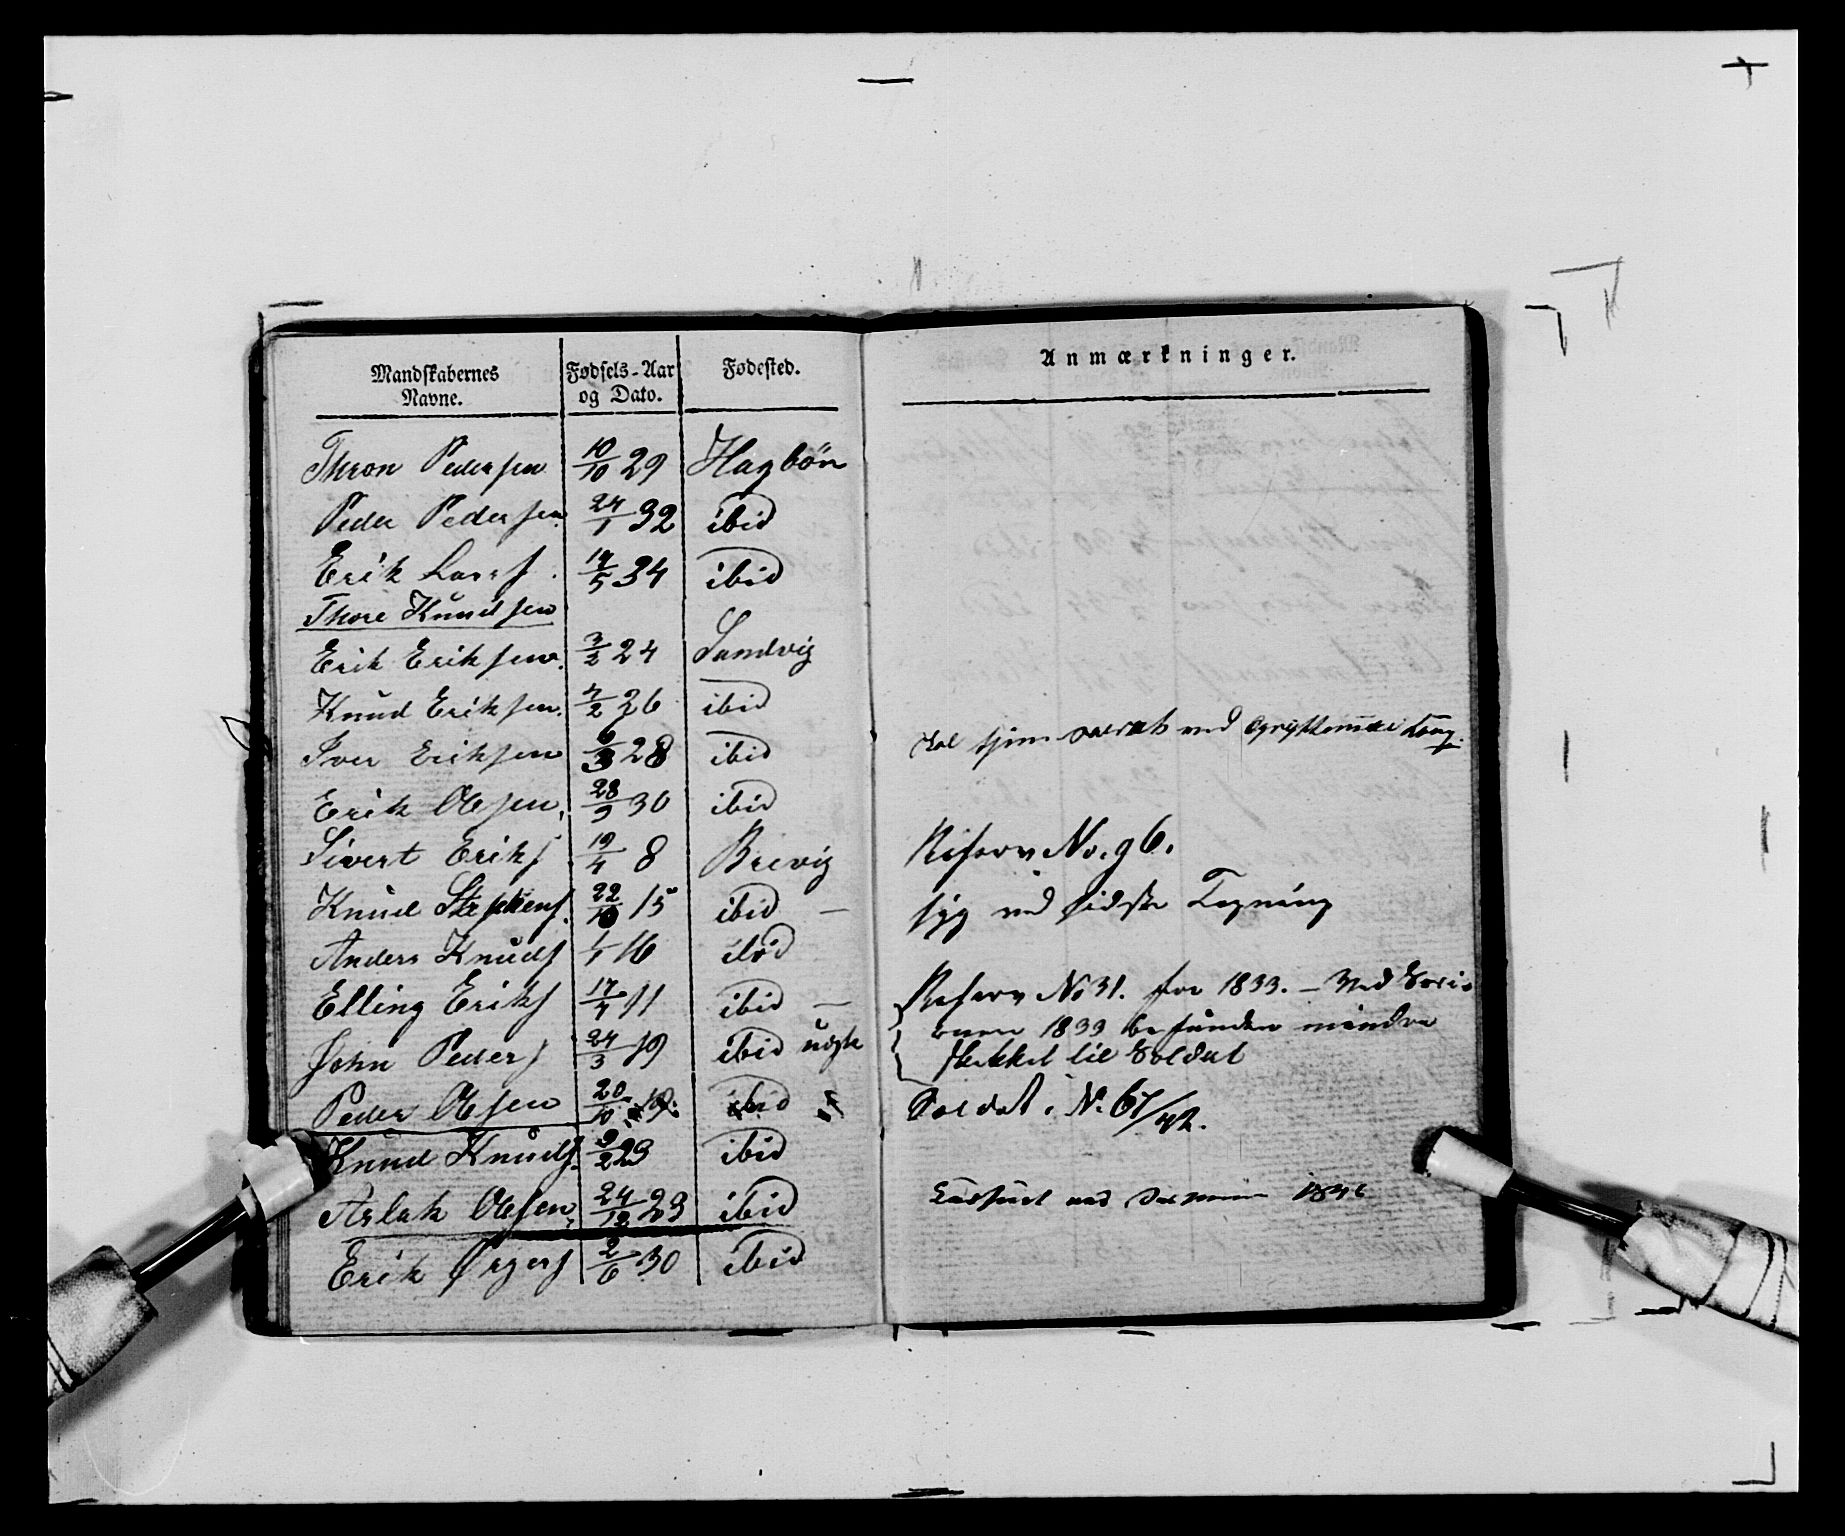 Mandskabernes Navne. Fødsels-Aar og Dato. Fødested.
Thron Pedersen 10/10 29 Hagbön
Peder Pedersen. 24/1 32 ibid
Erik Larss. 17/5 34 ibid
Thore Knudsen
Erik Eriksen. 3/2 24 Sandvig
Knud Eriksen. 4/2 26 ibid
Iver Eriksen 6/3 28 ibid
Erik Olsen. 28/9 30 ibid
Sivert Eriks 19/4 8 Brevig
Knud Stephens. 22/10 15 ibid —
Anders Knuds 1/1 16 ibid
Elling Eriks 17/4 11 ibid —
John Peders 24/3 19 ibid
Peder Olsen 20/10 19. ibid
Knud Knuds. 9/2 23 ibid
Aslak Olsen. 24/12 23 ibid
Erik Ørgers 2/6 30 ibid
Anmærkninger.
Skal tjene ved
Reserv No. 96.
syg ved sidste Tegning
Reserv No 31. for 1833. — Ved
1833 befunden mindre
skikket til Soldat
Soldat i N. 67/42.
ved